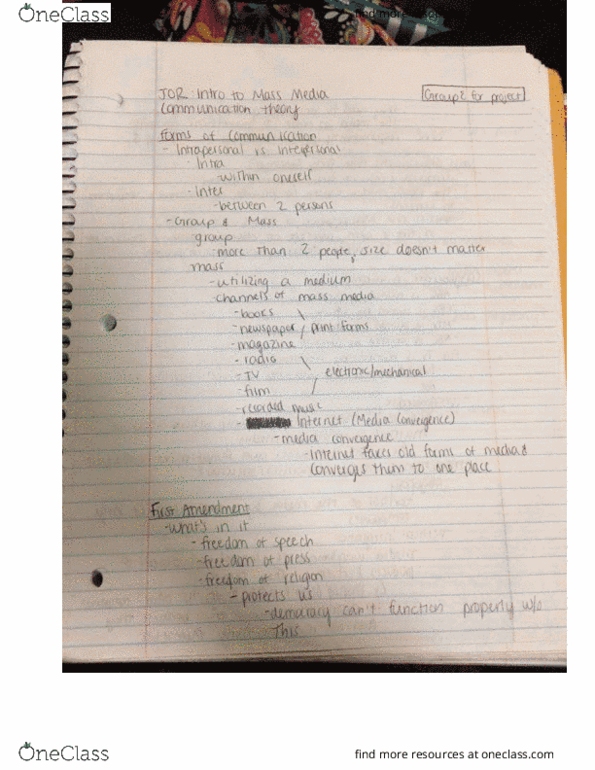 OneClass
find more
JOR: Intro to Mass Media
Group 2 for project
Communication theory
Forms of Communication
- Intrapersonal vs Interpersonal
- Intra
- within oneself
- Inter
- between 2 persons
- Group & Mass
group
- more than 2 people, size doesn't matter
mass
- utilizing a medium
- channels of mass media
- books
- newspaper / print forms
- magazine
- radio
- TV electronic/mechanical
- film
- recorded music
- Internet (Media Convergence)
- media convergence
- Internet takes old forms of media &
converges them to one place
First Amendment
- what's in it
- freedom of speech
- freedom of press
- freedom of religion
- protects us
- democracy can't function properly w/o
this
OneClass
find more resources at oneclass.com